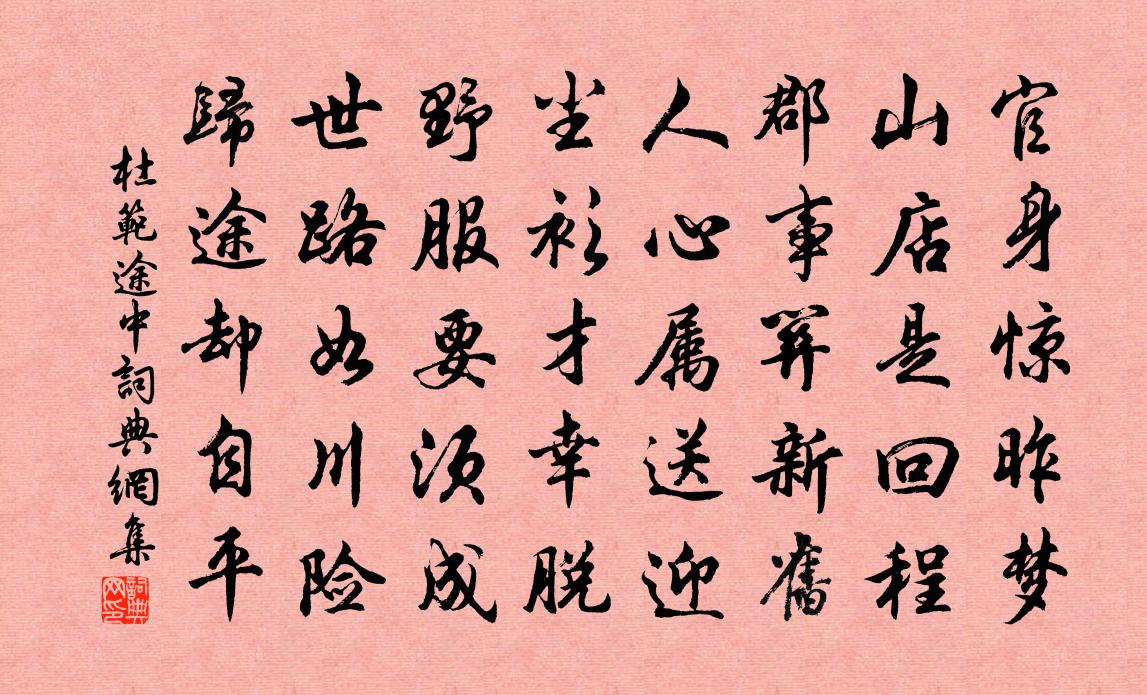 官身惊昨梦
山店是回程
郡事羿新舊
人心属送迎
尘衫才幸脱
野服要须成
世路如川险
歸途却自平
杜範途中詞典網集
詞典网印